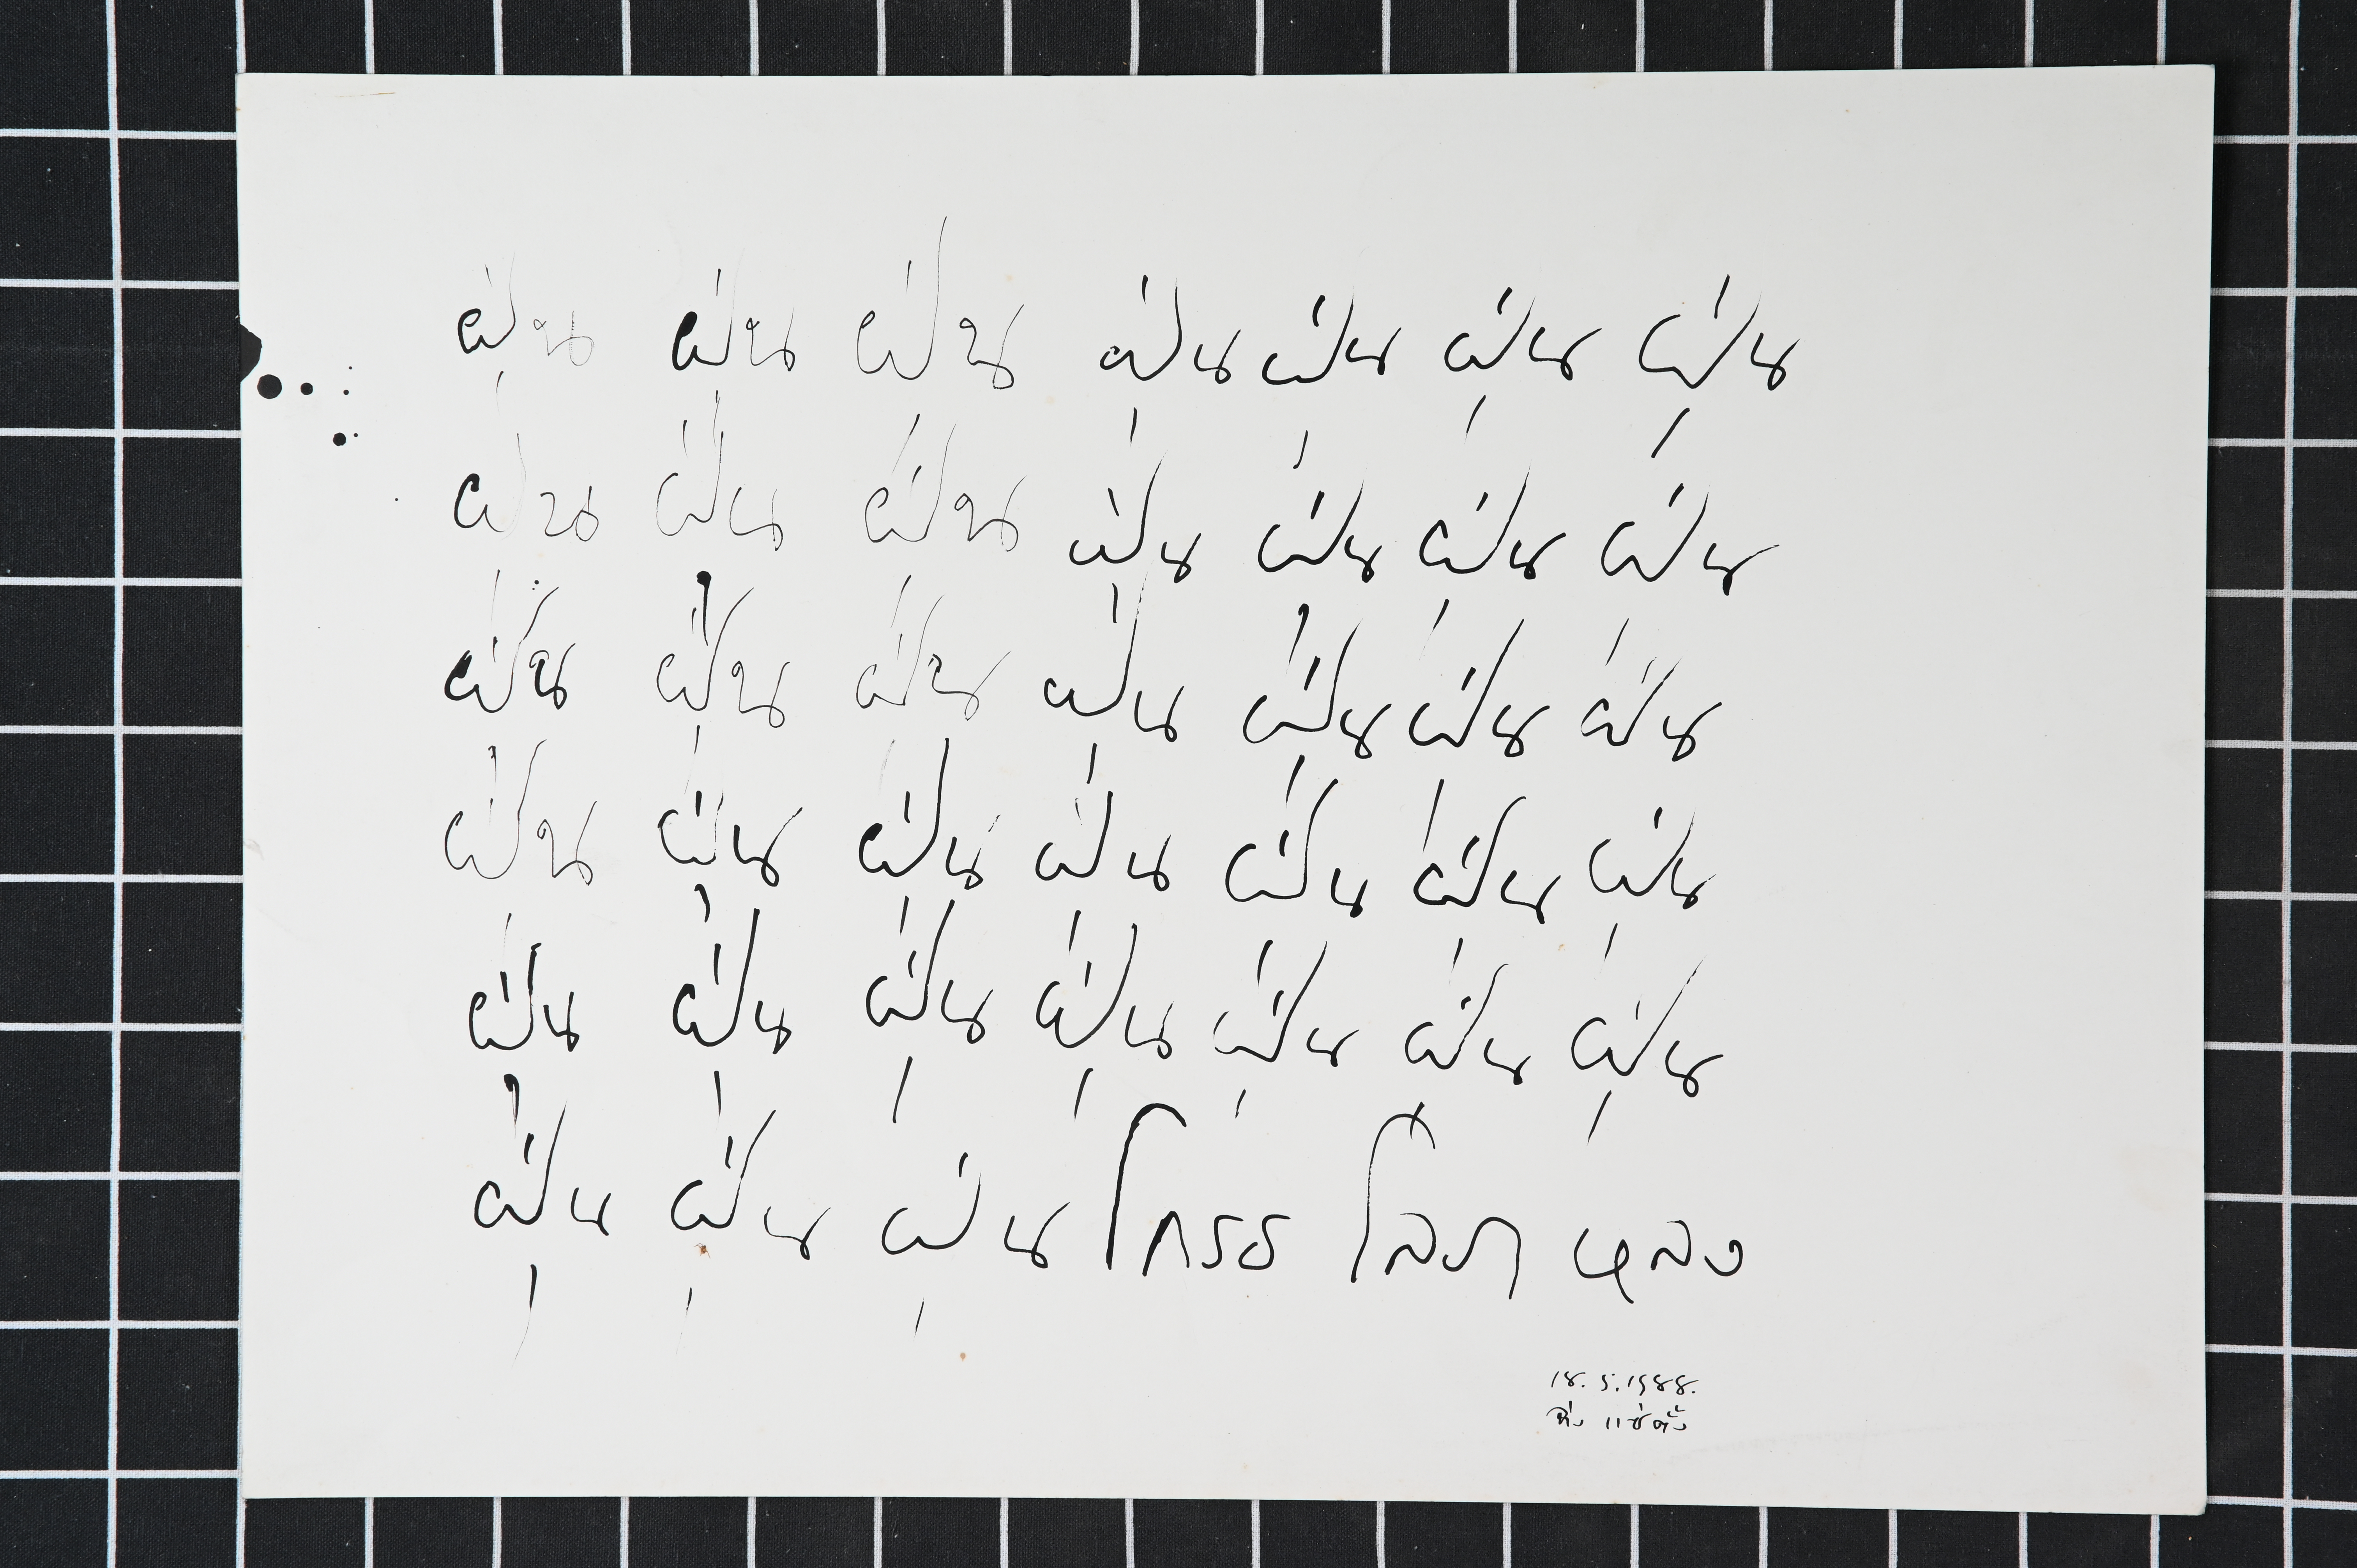 ฝุ่น ฝุ่น ฝุ่น ฝุ่น ฝุ่น ฝุ่น ฝุ่น
ฝุ่น ฝุ่น ฝุ่น ฝุ่น ฝุ่น ฝุ่น ฝุ่น
ฝุ่น ฝุ่น ฝุ่น ฝุ่น ฝุ่น ฝุ่น ฝุ่น
ฝุ่น ฝุ่น ฝุ่น ฝุ่น ฝุ่น ฝุ่น ฝุ่น
ฝุ่น ฝุ่น ฝุ่น ฝุ่น ฝุ่น ฝุ่น ฝุ่น
ฝุ่น ฝุ่น ฝุ่น โกรธ โลภ หลง
18. 5. 1988.
จ่าง แซ่ตั้ง